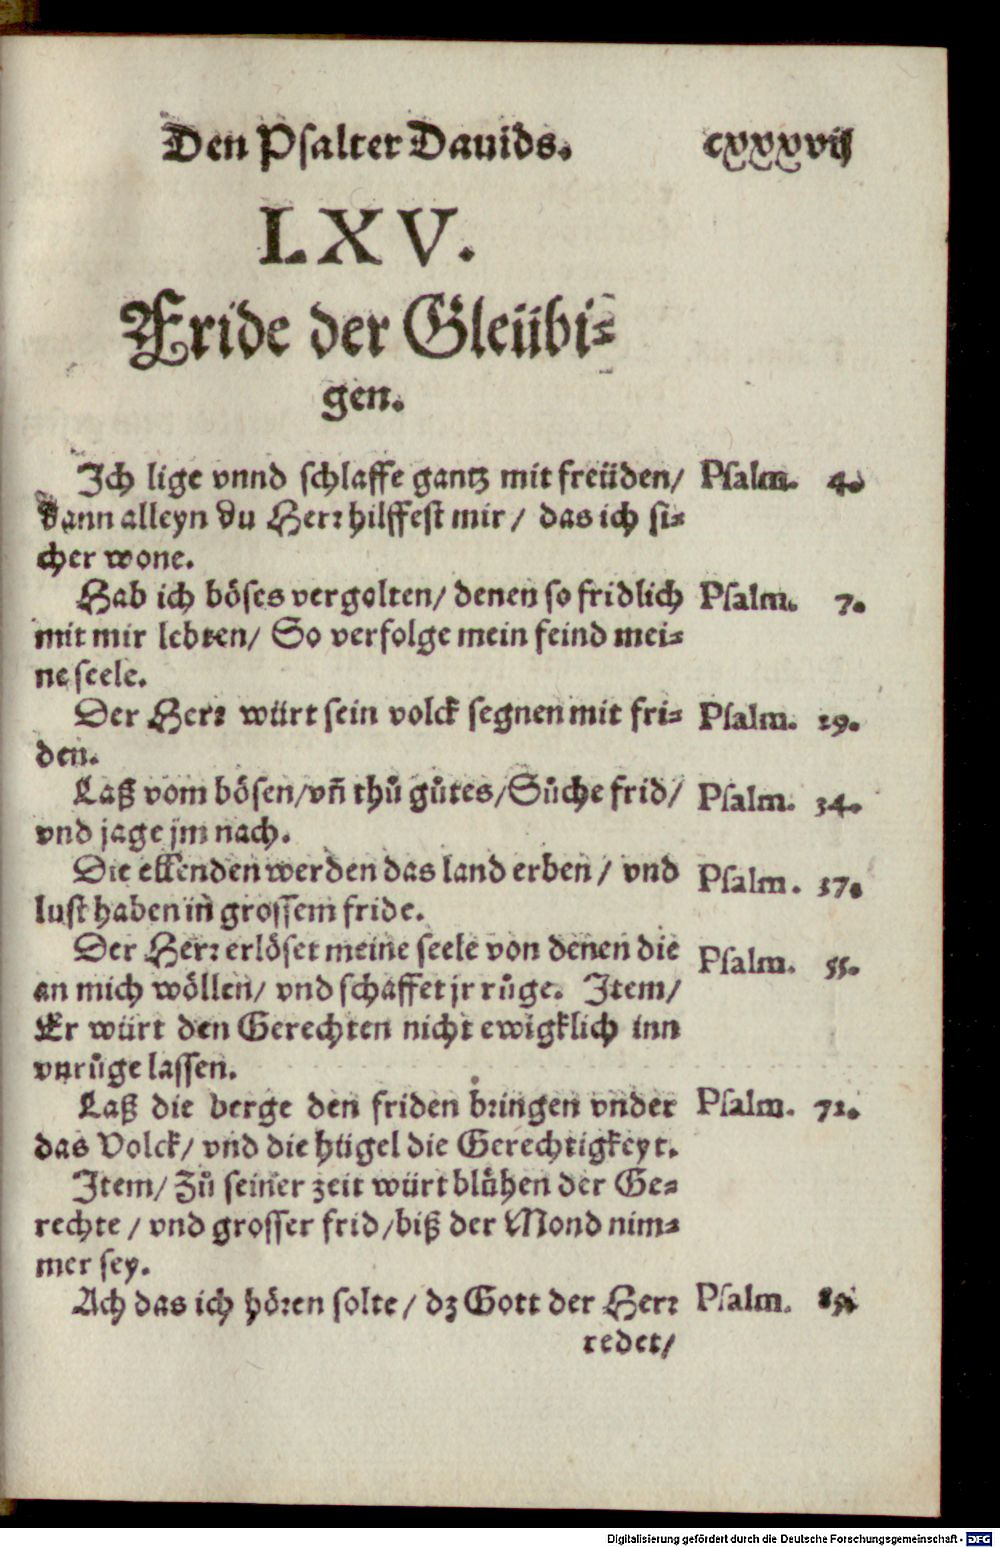 Den Psalter Dauids. cxxxvij
LXV.
Fride der Gleübi⸗
gen.
Ich lige vnnd schlaffe gantz mit freüden/ Psalm. 4.
dann alleyn du Herr hilffest mir/ das ich si⸗
cher wone.
Hab ich böses vergolten/ denen so fridlich Psalm. 7.
mit mir lebten/ So verfolge mein feind mei⸗
ne seele.
Der Herr würt sein volck segnen mit fri⸗ Psalm. 29.
den.
Laß vom bösen/vñ thů gůtes/Sůche frid/ Psalm. 34.
vnd jage jm nach.
Die ellenden werden das land erben/ vnd Psalm. 37.
lust haben in grossem fride.
Der Herr erlöset meine seele von denen die Psalm. 55.
an mich wöllen/ vnd schaffet jr růge. Item/
Er würt den Gerechten nicht ewigklich inn
vnrůge lassen.
Laß die berge den friden bringen vnder Psalm. 72.
das Volck/ vnd die hügel die Gerechtigkeyt.
Item/ Zů seiner zeit würt blühen der Ge⸗
rechte/ vnd grosser frid/biß der Mond nim⸗
mer sey.
Ach das ich hören solte/ dz Gott der Herr Psalm.
redet/
Digitalisierung gefördert durch die Deutsche Forschungsgemeinschaft - DFG